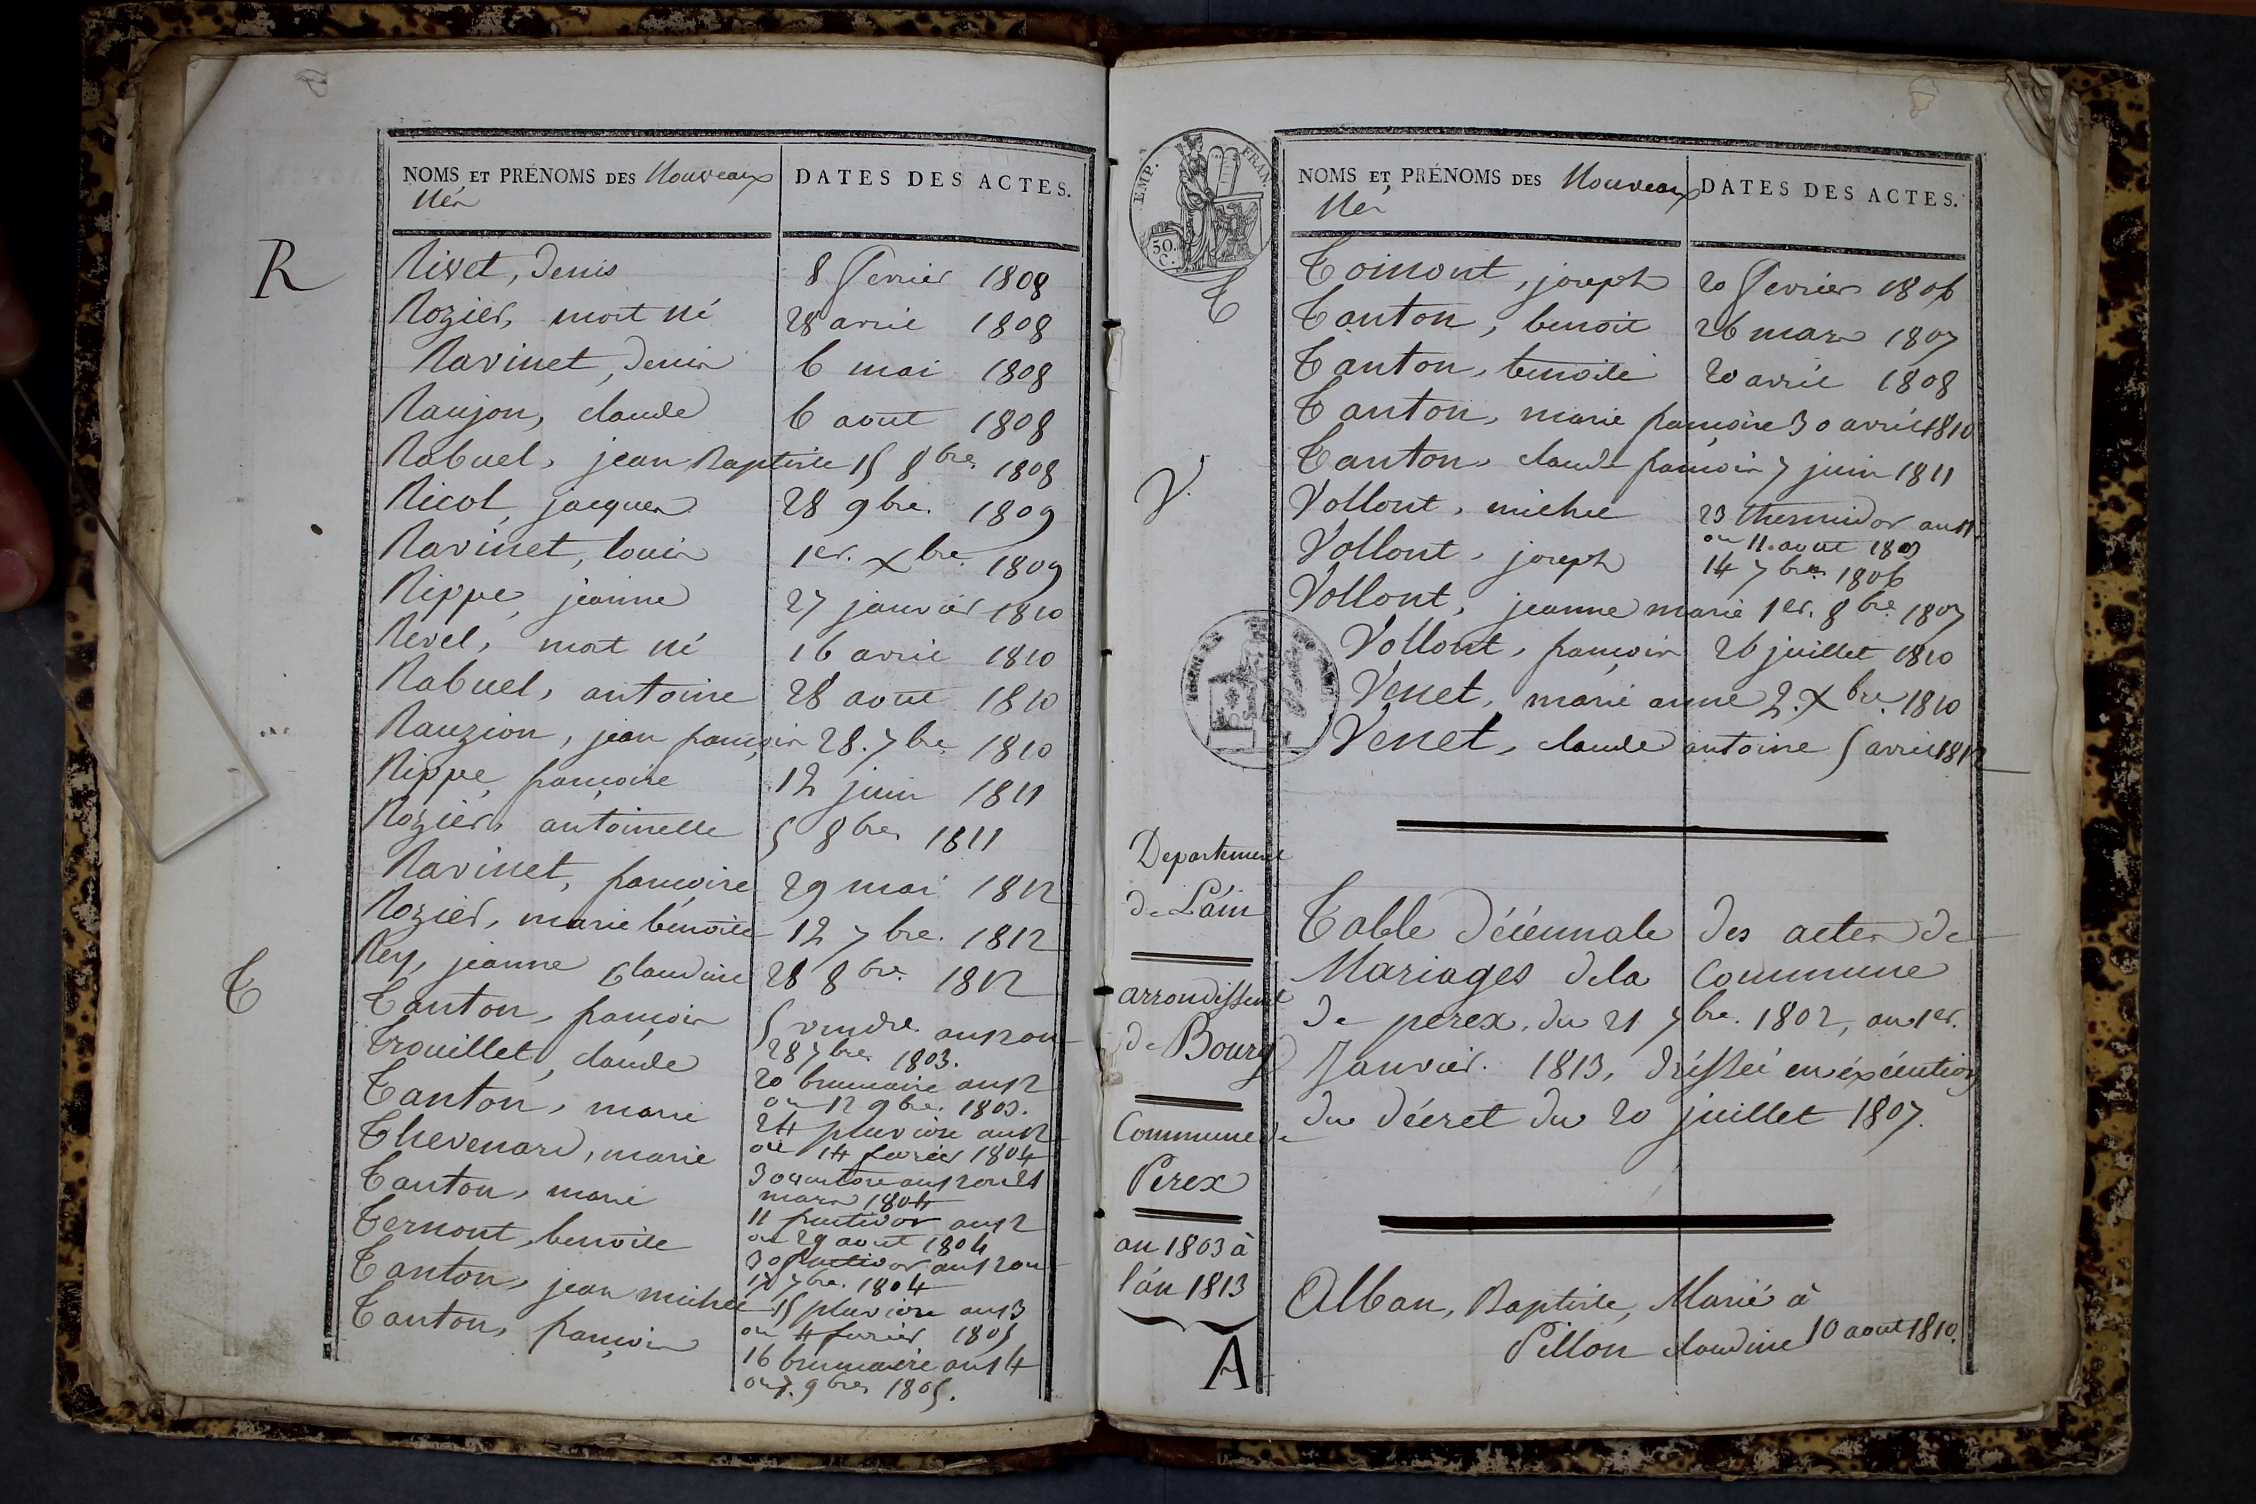 NOMS ET PRÉNOMS DES Nouveaux
Nés
DATES DES ACTES.
R
Rivet, Denis 8 fevrier 1808
Rozier, mort né 28 avril 1808
Ravinet, Denis 6 mai 1808
Raujon, claude 6 aout 1808
Rabuel, jean Baptiste 15 8bre 1808
Ricol, jacques 28 9bre. 1809
Ravinet, louis 1er. Xbre. 1809
Rippe, jeanne 27 janvier 1810
Revel, mort né 16 avril 1810
Rabuel, antoine 28 aout 1810
Rauzion, jean françois 28. 7bre 1810
Rippe, françoise 12 juin 1811
Rozier, antoinette 5 8bre 1811
Ravinet, françoise 29 mai 1812
Rozier, marie bénoite 12 7bre. 1812
Rey, jeanne Claudine 28 8bre. 1812
T
Tanton, françois 5 vendre. an 12 ou
28 7bre 1803.
Trouillet, claude 20 brumaire an 12
ou 12 9bre. 1803.
Tanton, marie 24 pluviose an 12
ou 14 fevrier 1804
Thevenard, marie 30 ventose an 12 ou 21
mars 1804
Tanton, marie 11 fructidor an 12
ou 29 aout 1804
Ternont, benoite 30 fructidor an 12 ou
17 7bre. 1804
Tanton, jean michel 15 pluviose an 13
ou 4 fevrier 1805
Tanton, françois 16 brumaire an 14
ou 7. 9bre 1805.
EMP. FRAN.
50.
C.
NOMS ET PRÉNOMS DES Nouveaux
Nés
DATES DES ACTES.
T
Toinont, joseph 20 fevrier 1806
Tanton, benoit 26 mars 1807
Tanton, benoite 20 avril 1808
Tanton, marie françoise 30 avril 1810
Tanton, claude françois 7 juin 1811
V.
Vollont, michel 23 thermidor an 11
ou 11. aout 1803
Vollont, joseph 14 7bre 1806
Vollont, jeanne marie 1er. 8bre 1807
Vollont, françois 26 juillet 1810
Venet, marie anne 2. Xbre. 1810
Venet, claude antoine 5 avril 1812
Departement
de L'ain
arrondissemt
de Bourg
Commune de
Perex
an 1803 à
l'an 1813
Table Décénnale des actes de
Mariages de la Commune
de perex, du 21 7bre. 1802, au 1er.
Janvier. 1813, dréssée en éxécution
du décret du 20 juillet 1807.
A
Alban, Baptiste, Marié à
Pillon claudine 10 aout 1810.